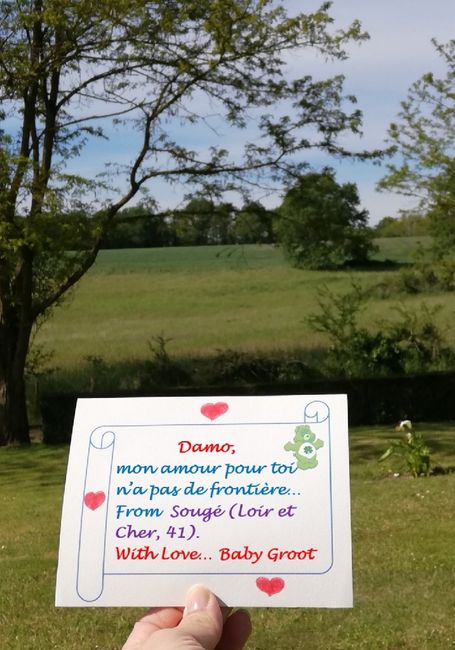 Damo,
mon amour pour toi
n'a pas de frontière...
From Sougé (Loir et
Cher, 41).
With Love... Baby Groot